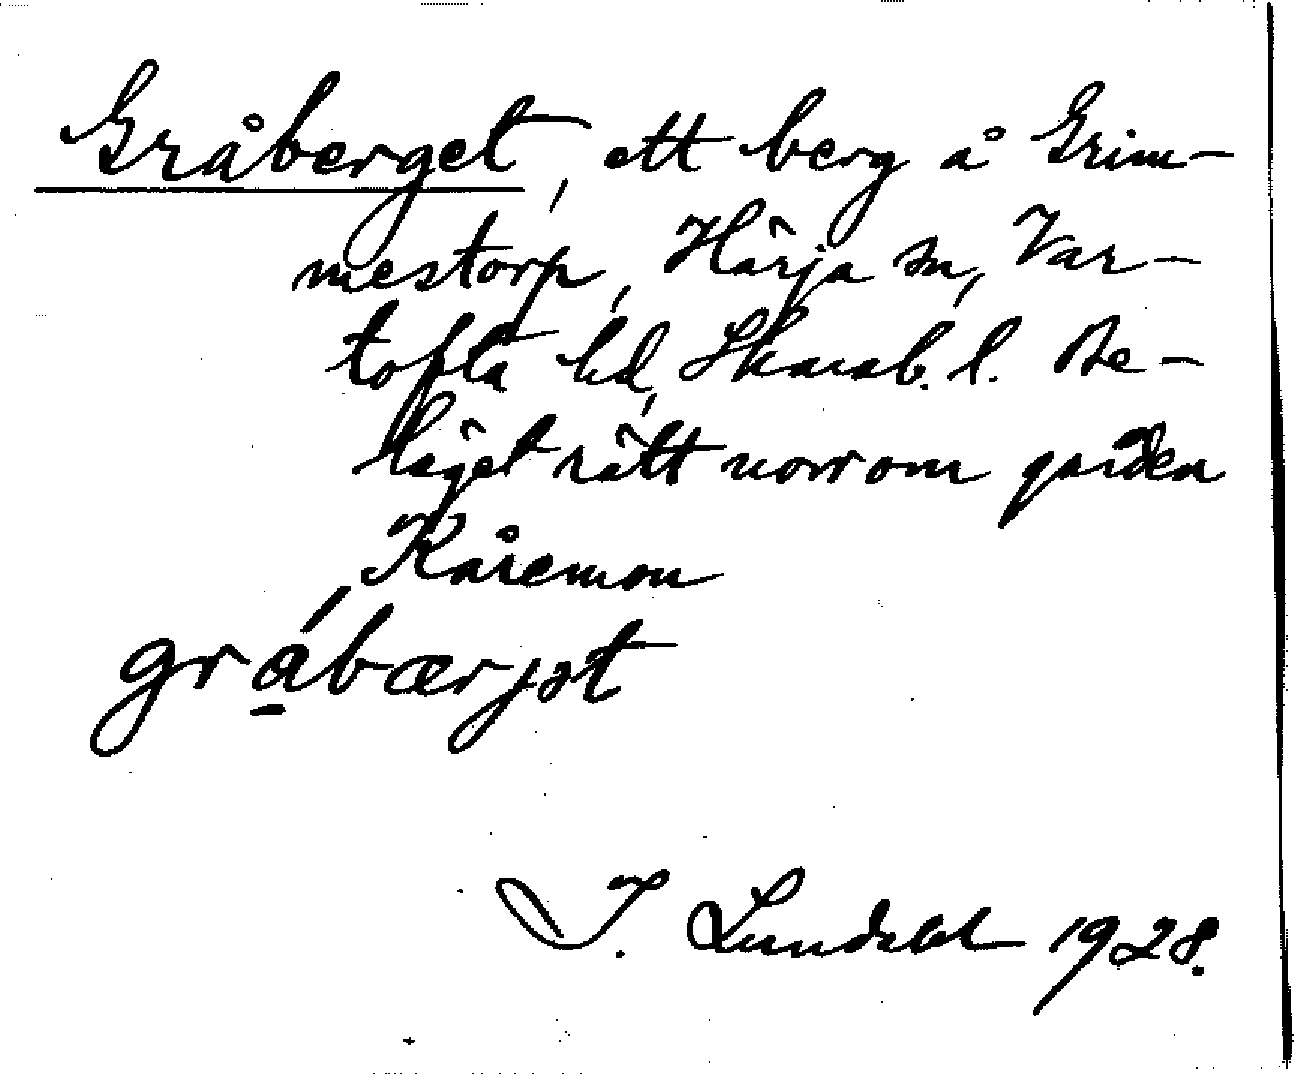 Gråberget, ett berg å Grim-
mestorp, Härja sn, Var-
tofta hd, Skarab. l. Be-
läget rätt norr om gården
Kåremon
gråbærjət
I. Lundahl 1928.